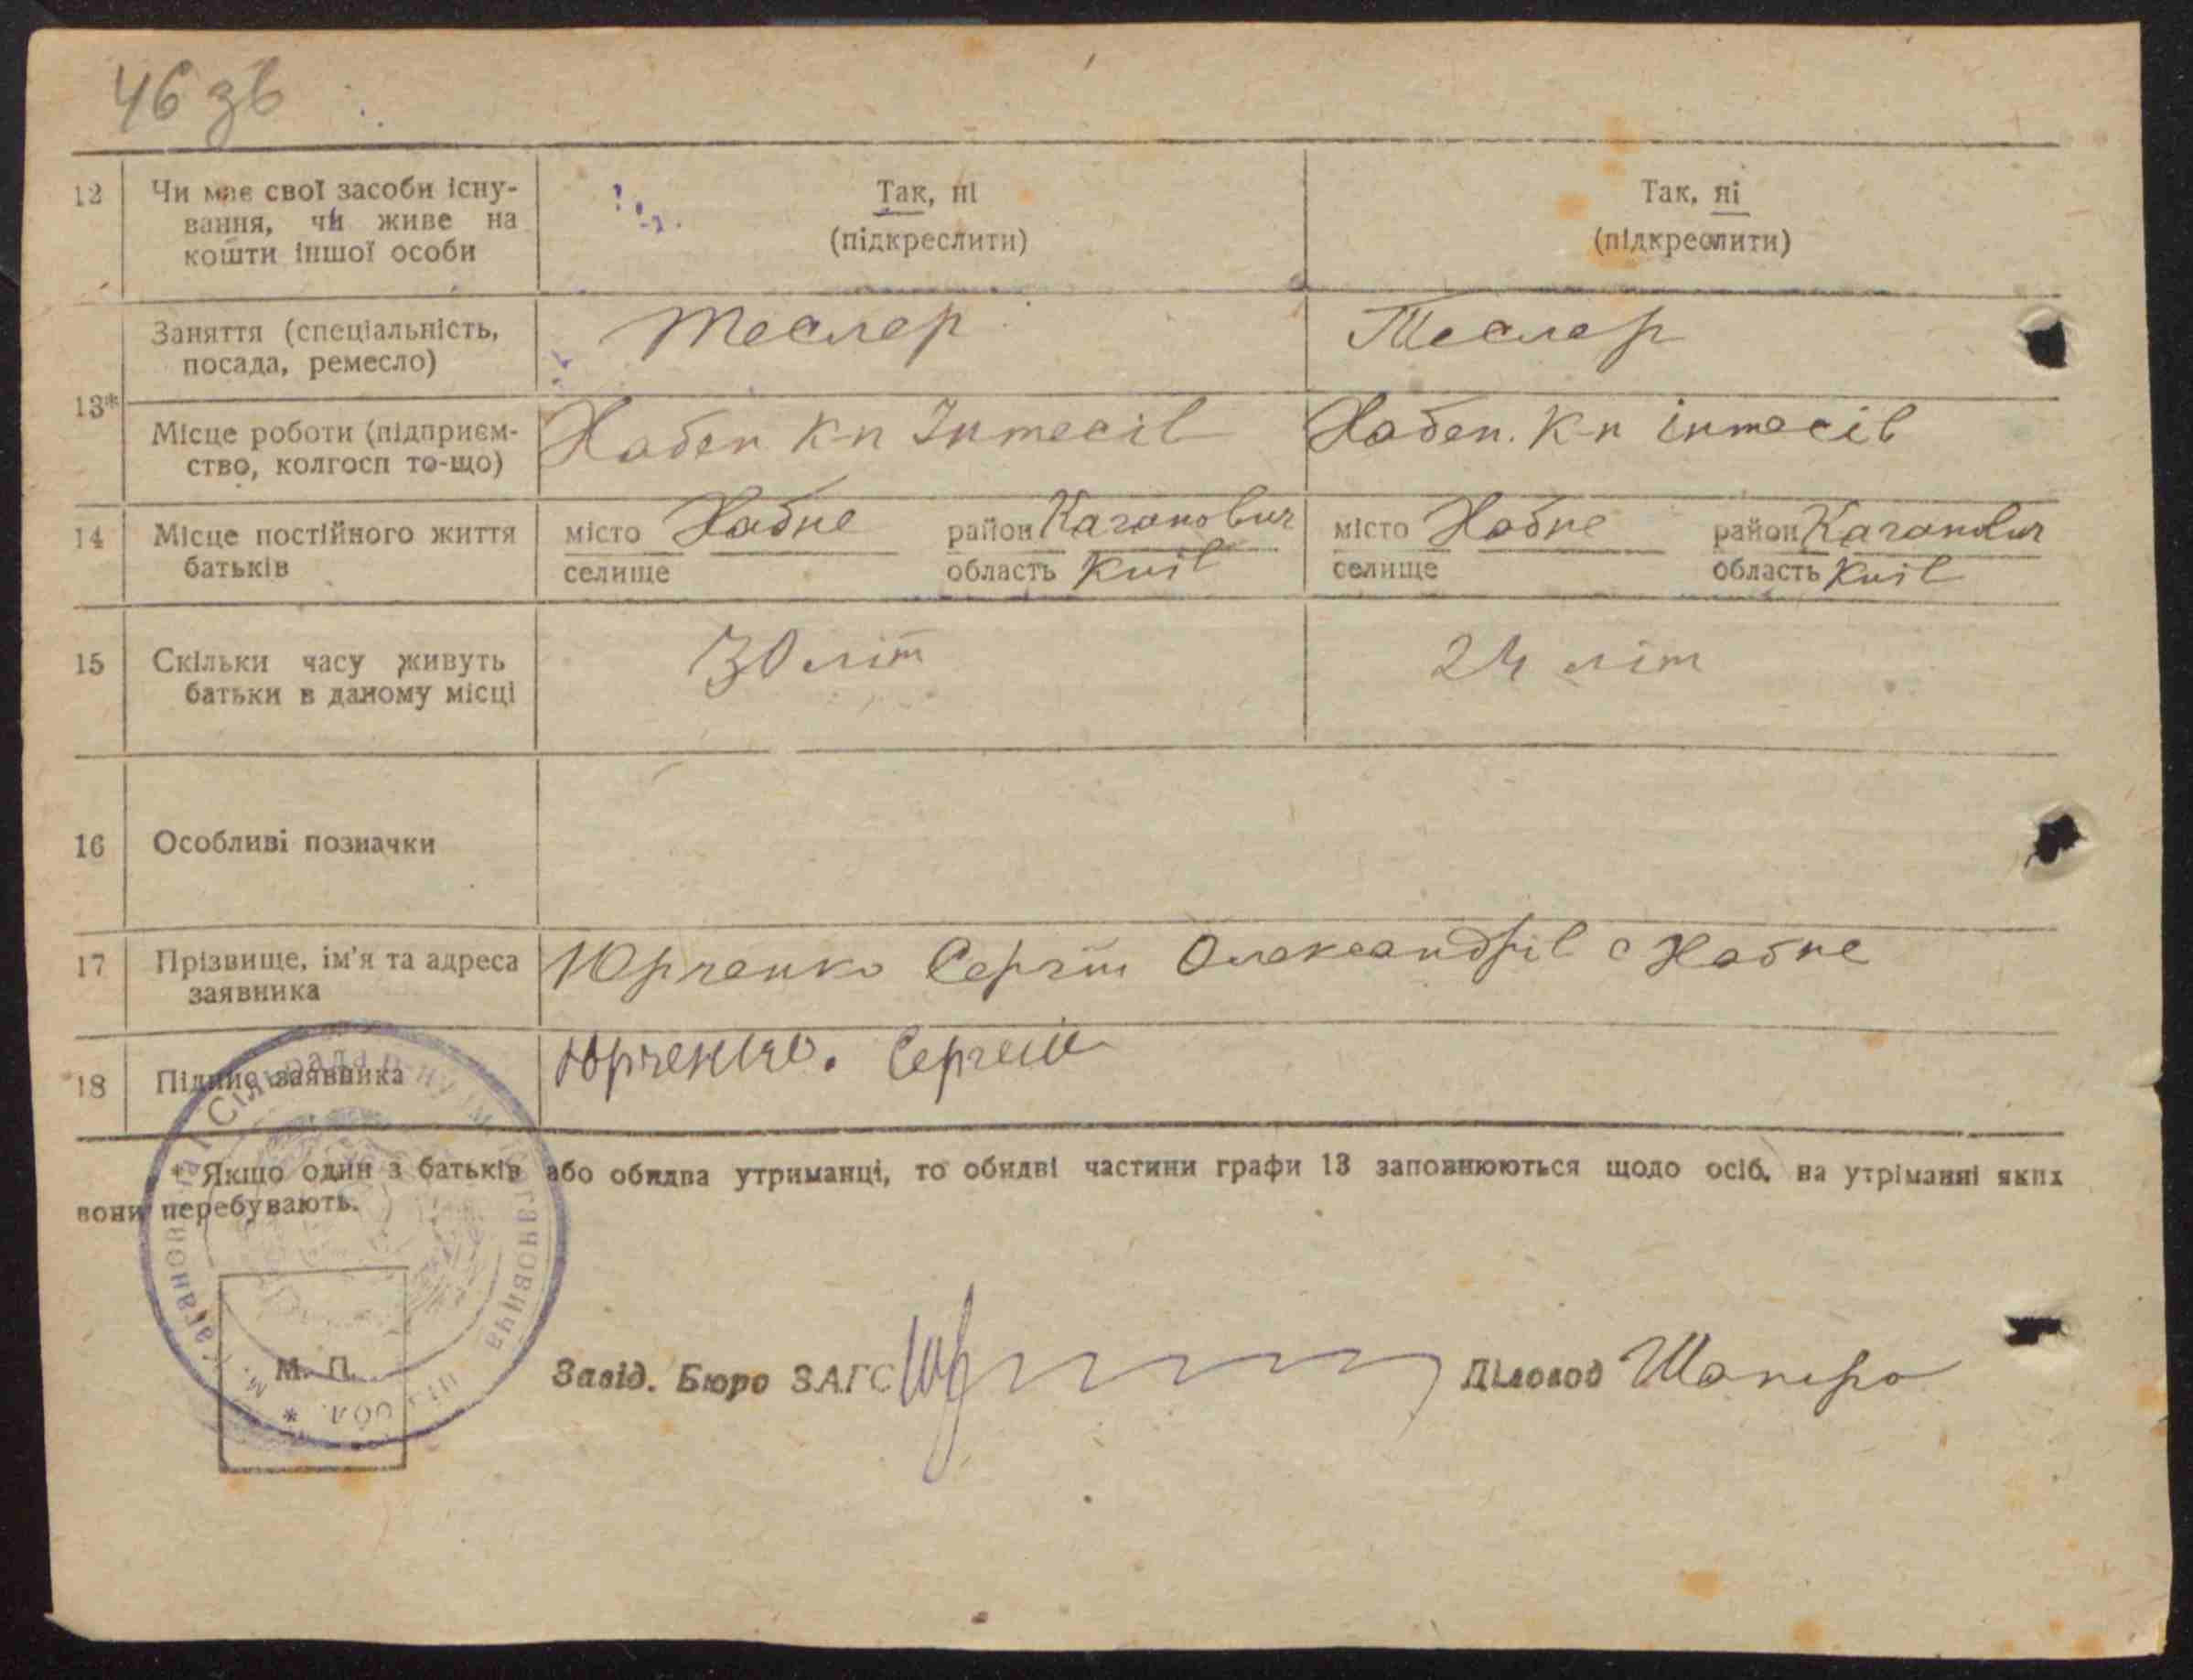 46 зв
12 Чи має свої засоби існу- Так, ні Так, ні
вання, чи живе на (підкреслити) (підкреслити)
кошти іншої особи
13* Заняття (спеціальність, Тесляр Тесляр
посада, ремесло)
Місце роботи (підприєм- Хабен к-п Інтесів Хабен. к-п інтесів
ство, колгосп то-що)
14 Місце постійного життя місто Хабне район Каганович місто Хабне район Каганович
батьків селище область Київ селище область Київ
15 Скільки часу живуть 30 літ 24 літ
батьки в даному місці
16 Особливі позначки
17 Прізвище, ім'я та адреса Юрченко Сергій Олександрів с Хабне
заявника
18 Підпис заявника Юрченко. Сергей
* Якщо один з батьків або обидва утриманці, то обидві частини графи 13 заповнюються щодо осіб, на утріманні яких
вони перебувають.
М. П.
Завід. Бюро ЗАГС Діловод Шапиро